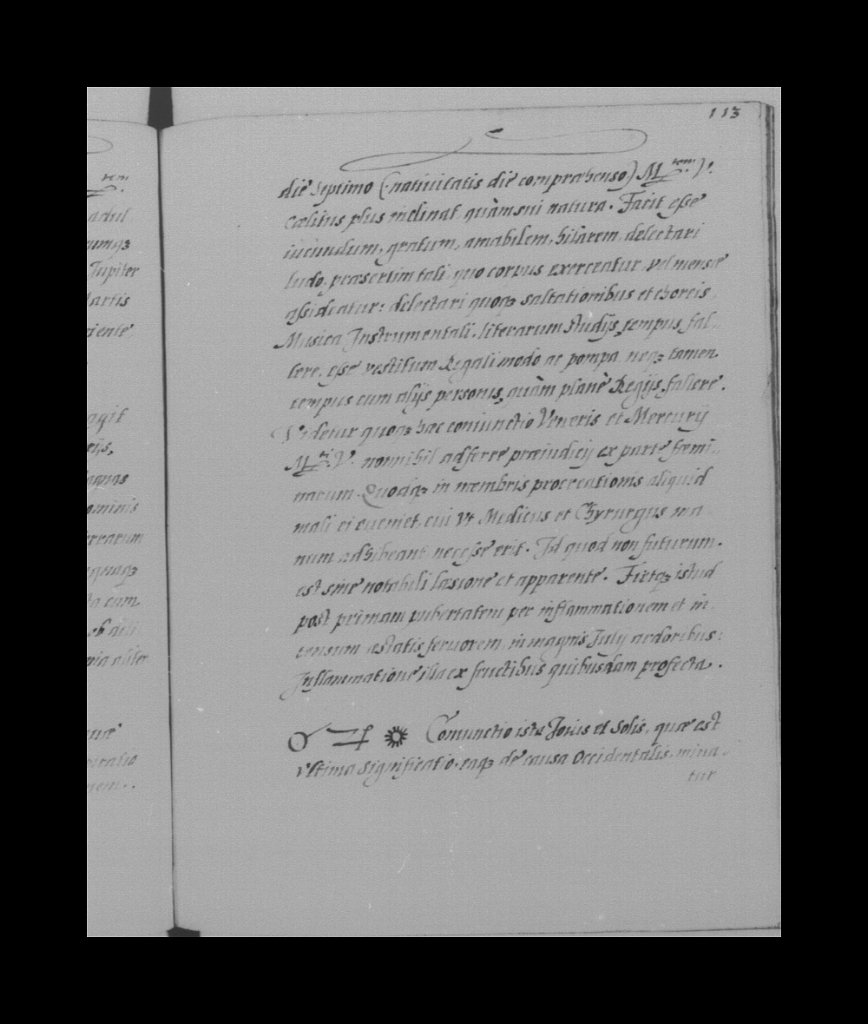 113
die septimo (nativitatis die comprehenso) M.tem V.
Cælitus plus inclinat quàm sui natura. Facit esse
iucundum, gratum, amabilem, hilarem, delectari
ludo, præsertim tali quo corpus exerceatur, vel mensæ
assideatur: delectari quoqꝫ saltationibus et choreis,
Musica Instrumentali, literarum studijs tempus fal-
lere, esse vestitum Regali modo ac pompa, neqꝫ tamen
tempus cum alijs personis, quàm planè Regijs fallere.
Videtur quoqꝫ hæc coniunctio Veneris et Mercurij
M.ti V. nonnihil adferre præiudicij ex parte fœmi-
narum. Quoqꝫ in membris procreationis aliquid
mali ei eueniet, cui vt Medicus et Chyrurgus ma
num adhibeant necesse erit. Id quod non futurum
est sine notabili læsione et apparente. Fietqꝫ istud
post primam pubertatem per inflammationem et in
censum æstatis feruorem, in magnis Julij ardoribus:
Inflammatione illa ex fructibus quibusdam profecta.
☌ ♃ ☼ Coniunctio ista Jouis et Solis, quæ est
vltima significatio, eaqꝫ de causa Occidentalis, mina-
tur
tem.
adul
umqꝫ
Jupiter
Martis
riente
agit
eijs,
agnas
ominis
rrarum
quaqꝫ
ta cum
ob dili
nia aliter